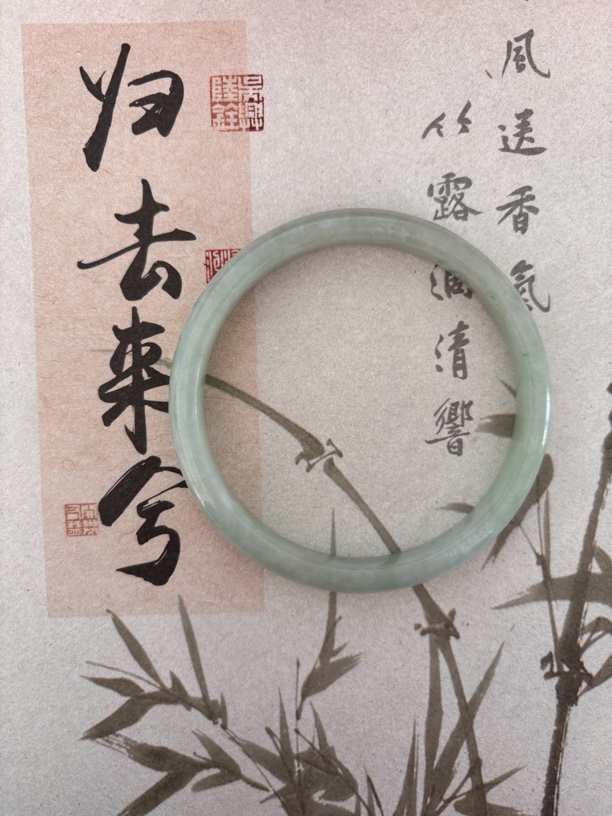 風送香氣
竹露滴清響
归去来兮